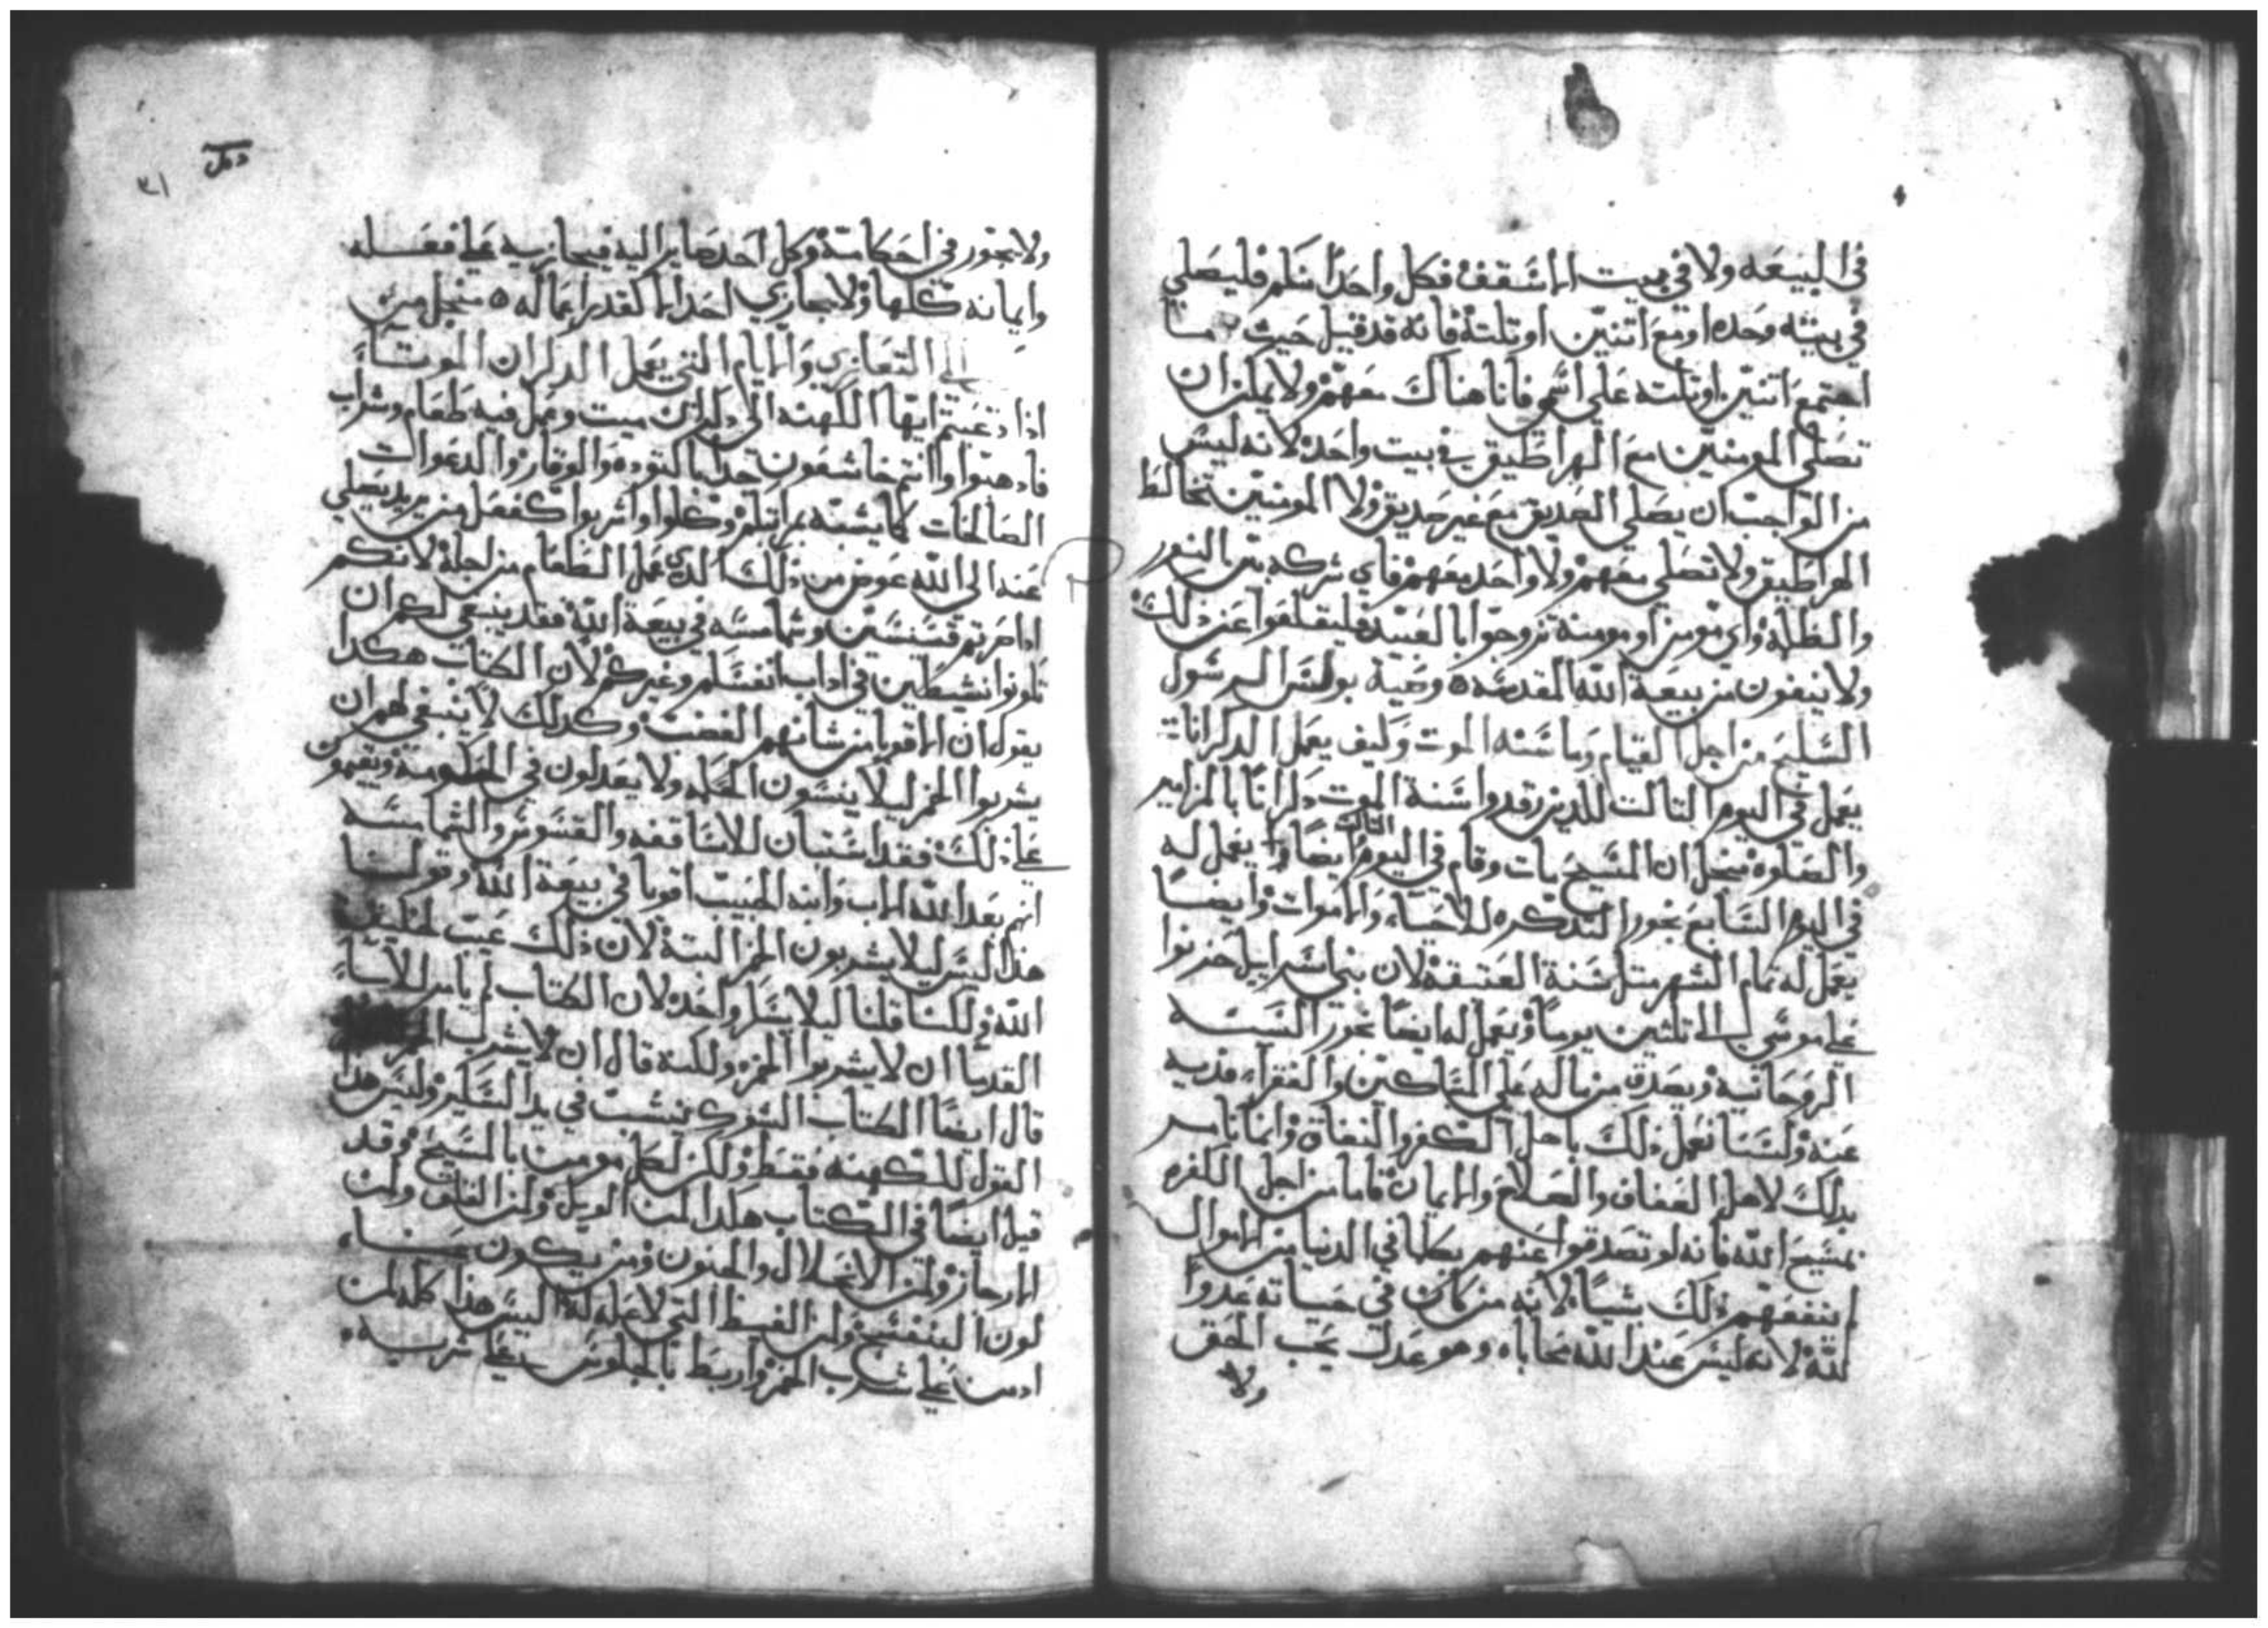 في البيعه ولا في بيت الاسقف فكل واحدًا منكم فليصلي
في بيته وحده او مع اتنين او تلتة فانه قد قيل حيث ما
اجتمع اتنين او تلته علي اسمي فانا هناك معهم ولا يمكن ان
تصلي المومنين مع الهراطيق في بيت واحد لانه ليس
من الواجب ان يصلي الصديق مع غير صديق ولا المومنين تخالط
الهراطيق ولا تصلي معهم ولا واحد معهم فاي شركه بين النور
والظلمة واي مومن او مومنة تزوجوا بالعبيد فليقلعوا عن ذلك
ولا ينفون من بيعة الله المقدسه ٥ وصية بولس الرسول
السليح من اجل القيام وما سنه الموت وكيف يعمل الدكرانات
يعمل في اليوم التالت للدين رقدوا سنة الموت دكرانًا بالمزامير
والصلوه من اجل ان المسيح مات وقام في اليوم التالت ايضًا و يعمل له
في اليوم السابع بخور التدكره للاحياء والاموات وايضًا
يعمل له تمام الشهر متل سنة العتيقة لان بني اسرايل حزنوا
علي موسي الي تلتين يومًا ويعمل له ايضًا بخور السنه
الروحانية ويصدق من ماله علي المساكين والفقراء فديه
عنه ولسنا نعمل ذلك باهل الكفر والنفاق وانما نامر
بدلك لاهل العفاف والصلاح والايمان فاما من اجل الكفره
بمسيح الله فانه لو تصدقوا عنهم بكلما في الدنيا من الاموال
لم ينفعهم ذلك شيًا لانه من كان في حياته عدوًا
لله لانه ليس عند الله محاباه وهو عدل يحب الحق
ولا
دهل
٣١
ولا يجور في احكامه وكل احد صاير اليه فيجازيه علي فعله
وايمانه كلها ولا يجازي احد الا كقدر اعماله ٥ من اجل من
الي التعازي والايام التي يعمل الدكران الموتاء
ادا دعيتم ايها الكهنه الي دكران ميت وعمل فيه طعام وشراب
فادهبوا وانتم خاشعون جدًا بالتوده والوقار والدعوات
الصالحات كما يشبه مراتبكم وكلوا واشربوا كفعل من يريد يصلي
عنه الي الله عوض من ذلك الدي عمل الطعام من اجله لانكم
ادا صرتم قسيسين وشمامسه في بيعة الله فقد ينبغي لكم ان
تكونوا نشيطين في اداب انفسكم وغيركم لان الكتاب هكدا
يقول ان الاقويا من شانهم الغضب وكدلك لا ينبغي لهم ان
يشربوا الخمر ليلا ينسون الحكمه ولا يعدلون في الحكومة ويقيمون
علي ذلك فقد استبان للاساقفه والقسوس والشمامسه
انهم بعد الله الاب وابنه الحبيب اقويا في بيعة الله وقولنا
هدا ليس ليلا يشربون الخمر البتة لان ذلك عيب لخليقة
الله ولكننا قلنا ليلا يسكر واحد لان الكتاب لم يامر للاباء
القدما ان لا يشربوا الخمر ولكنه قال ان لا يشرب
قال ايضًا الكتاب الشوك ينشب في يد السكير وليس هدا
القول للكهنه فقط ولكن لكل مومن بالمسيح وقد
قيل ايضًا في الكتاب هكدا لمن الويل ولمن القلق ولمن
الارجاز ولمن الانحلال والجنون ومن يكون عيناه
لون البنفسج ولمن الغيظ التي لا عله لها اليس هدا كله لمن
ادمن علي شرب الخمر وارتبط بالجلوس علي شربه